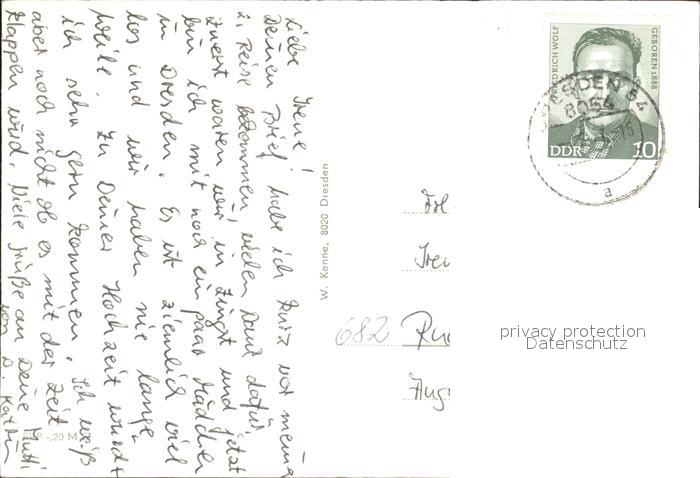 Liebe Irene!
Deinen Brief habe ich kurz vor meine
2. Reise bekommen, vielen Dank dafür.
Zuerst waren wir in Zingst und jetzt
bin ich mit noch ein paar Mädchen
in Dresden. Es ist ziemlich viel
los und wir haben nie lange-
weile. Zu Deiner Hochzeit würde
ich sehr gern kommen. Ich weiß
aber noch nicht ob es mit der Zeit
klappen wird. Viele Grüße an Deine Mutti
von D. Katrin
-,20 M
W. Kenne, 8020 Dresden
FRIEDRICH WOLF
GEBOREN 1888
DDR 10
DRESDEN 54
8054
a
Iren
682 Rud
Augu
privacy protection
Datenschutz